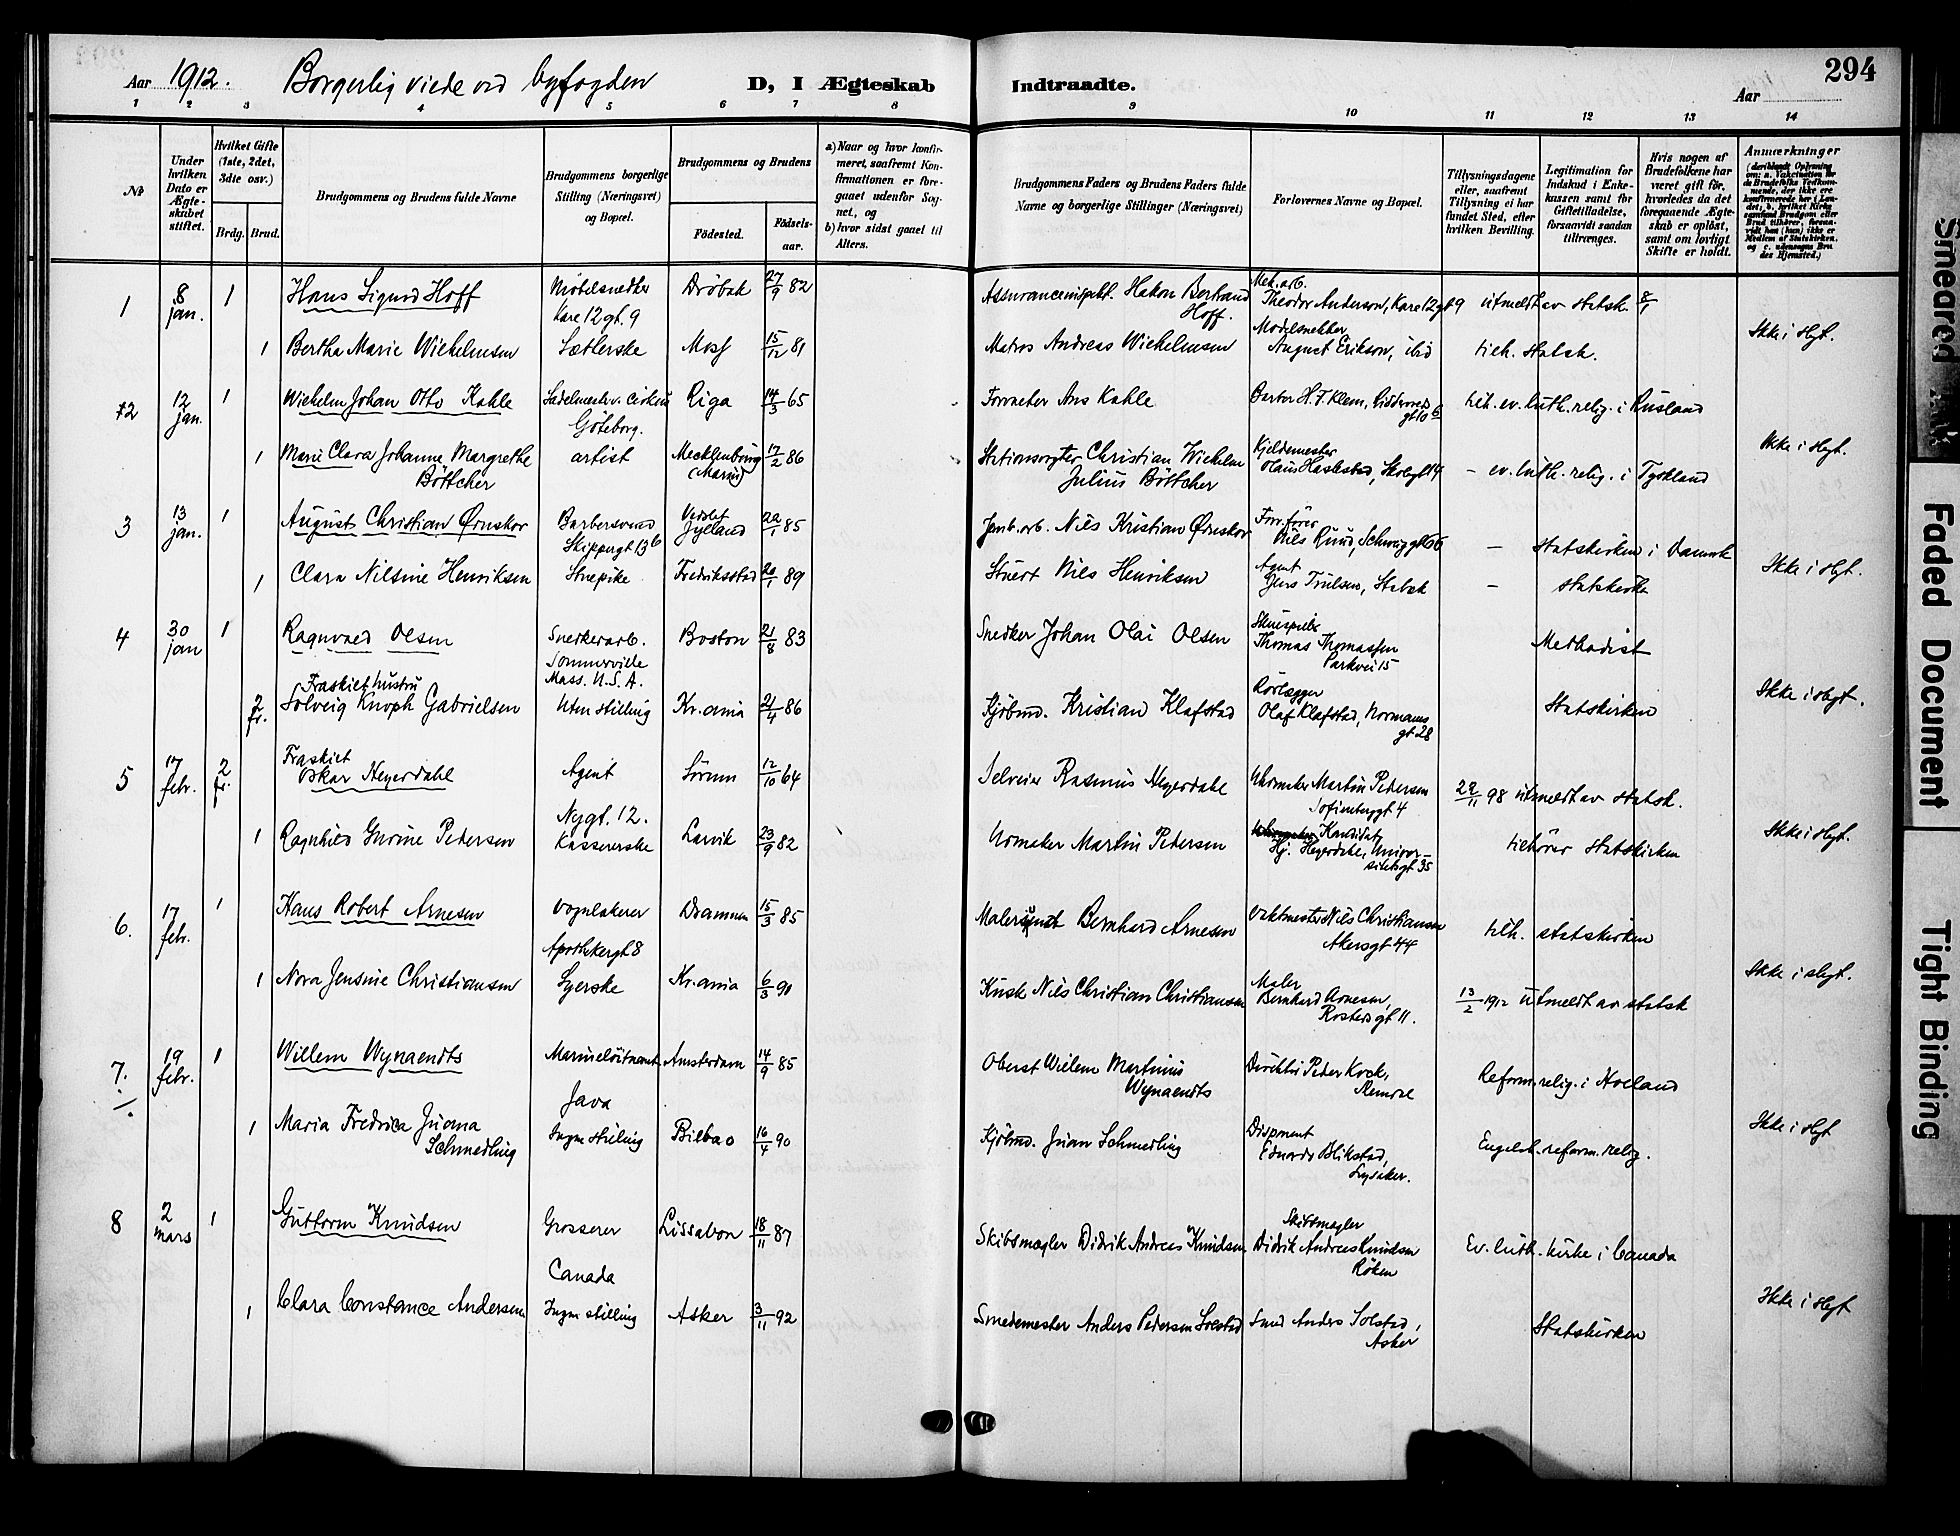 294
Aar 1912. Borgerlig viede ved byfogden D, I Ægteskab Indtraadte. Aar
1 2 3 4 5 6 7 8 9 10 11 12 13 14
№
Under hvilken Dato er Ægteskabet stiftet.
Hvilket Gifte (1ste, 2det, 3die osv.)
Brdg. Brud.
Brudgommens og Brudens fulde Navne
Brudgommens borgerlige Stilling (Næringsvei) og Bopæl.
Brudgommens og Brudens
Fødested. Fødsels-aar.
a) Naar og hvor konfirmeret, saafremt Konfirmationen er foregaaet udenfor Sognet, og
b) hvor sidst gaaet til Alters.
Brudgommens Faders og Brudens Faders fulde Navne og borgerlige Stillinger (Næringsvei)
Forlovernes Navne og Bopæl.
Tillysningsdagene eller, saafremt Tillysning ei har fundet Sted, efter hvilken Bevilling.
Legitimation for Indskud i Enkekassen samt for Giftetilladelse, forsaavidt saadan tiltrænges.
Hvis nogen af Brudefolkene har været gift før, hvorledes da det foregaaende Ægteskab er opløst, samt om lovligt Skifte er holdt.
Anmærkninger
1 8 jan. 1 Hans Sigurd Hoff Möbelsnedker Dröbak 27/9 82 Assuranceinspekt. Hakon Bertrand Mek. arb.
Kare 12 gt. 9 Hoff. Theodor Anderson, Kare 12 gt 9 utmeldt av statsk. 8/1
1 Bertha Marie Wilhelmsen Sætlerske Moss 15/12 81 Matros Andreas Wilhelmsen Modelsnekker
August Erikson, ibid tilh. statsk. Ikke i slgt.
2 12 jan. 1 Wilhelm Johan Otto Kahle Sadelmester v. Cirkus Riga 14/3 65 Forvalter Ans Kahle H. F. Klem,
Göteborg. tilh. ev. luth. relig. i Rusland
1 Marie Clara Johanne Margrethe artist Mecklenburg 17/2 86 Christian Wilhelm Kjeldemester
Böttcher Julius Böttcher - ev. luth. relig. i Tyskland Ikke i slgt.
3 13 jan. 1 August Christian Ørnskov Barbersvend Jylland 22/1 85 Jernb. arb. Nils Kristian Ørnskov
Skippergt 13 b Nils Ruud, - statskirken i Danmk
1 Clara Nilsine Henriksen Stuepike Fredriksstad 20/1 89 Stuert Nils Henriksen Agent
Jens Trulsen, Stabæk - statskirke Ikke i slgt.
4 30 jan 1 Ragnvald Olsen Snekkerarb. Boston 21/8 83 Snedker Johan Olai Olsen Skuespiller
Sommerville Thomas Thomassen Methodist
Mass. U.S.A. Parkvei 15
Fraskilt hustru
2 fr. Solveig Knoph Gabrielsen Uten stilling Kr.ania 21/4 86 Kjöbmd. Kristian Klafstad Rörlægger
Olaf Klafstad, Normans gt 28 Statskirken Ikke i slegt.
5 17 febr. 2 fr. Fraskilt
Oskar Heyerdahl Agent Sörum 12/10 64 Selveier Rasmus Heyerdahl Uhrmaker Martin Pedersen
Nygt. 12. Sofienberggt 4 22/11 98 utmeldt av statsk.
1 Ragnhild Gurine Pedersen Kassererske Larvik 23/9 82 Urmaker Martin Pedersen Kandidat
Hj. Heyerdahl, Universitetsgt 35 tilhörer statskirken Ikke i slgt.
6. 17 febr. 1 Hans Robert Arnesen Vognlakerer Drammen 15/3 85 Bernhard Arnesen Vaktmester Nils Christiansen
Apothekergt 8 Akersgt 44 tilh. statskirken
1 Nora Jensine Christiansen Syerske Kr.ania 6/3 90 Kusk Nils Christian Christiansen Maler
Bernhard Arnesen, Rosteds gt 11. 13/2 1912 utmeldt av statsk Ikke i slegt.
7. 19 febr. 1 Willem Wynaendts Marinelöitnant Amsterdam 14/9 85 Oberst Willem Martinus Direktör Peder Kock,
Java Wynaendts Reform. relig. i Holland
1 Maria Fredrica Juana Ingen stilling Bilbao 16/4 90 Kjöbmd. Juan Schmedling Disponent
Schmedling Eduard Blikstad, Lysaker. Engelsk. reform. relig. Ikke i slgt
8 2 mars 1 Guttorm Knudsen Grosserer Lissabon 18/11 87 Skibsmægler Didrik Andreas Knudsen Skibsmægler
Canada Didrik Andreas Knudsen Röken Ev. luth. kirke i Canada
1 Clara Constance Andersen Ingen stilling Asker 3/11 92 Smedemester Anders Pedersen Solstad Smed Anders Solstad,
Asker Statskirken Ikke i slegt
Smeared Ink
Faded Document
Tight Binding